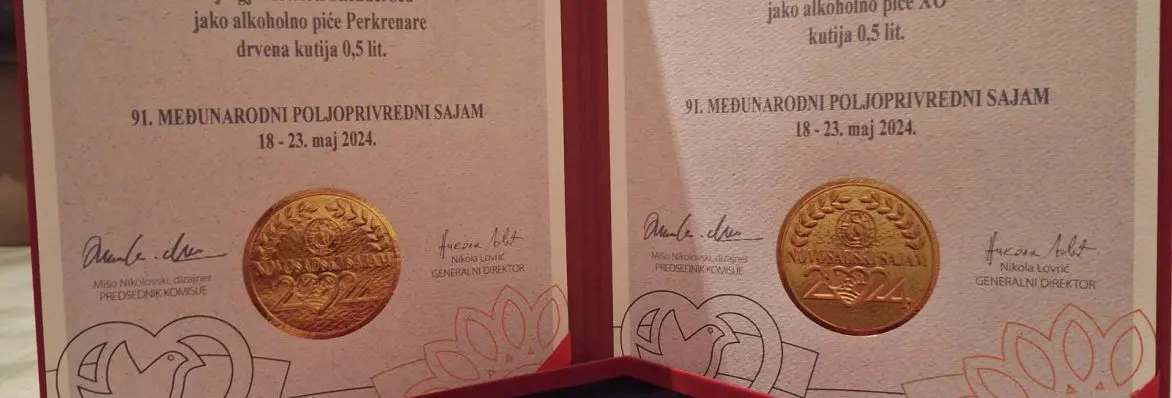 jako alkoholno piće Perkrenare
drvena kutija 0,5 lit.
91. MEĐUNARODNI POLJOPRIVREDNI SAJAM
18 - 23. maj 2024.
NOVOSADSKI SAJAM
Mišo Nikolovski, dizajner
PREDSEDNIK KOMISIJE
Nikola Lovrić
GENERALNI DIREKTOR
jako alkoholno piće XO
kutija 0,5 lit.
91. MEĐUNARODNI POLJOPRIVREDNI SAJAM
18 - 23. maj 2024.
NOVOSADSKI SAJAM
2024
Mišo Nikolovski, dizajner
PREDSEDNIK KOMISIJE
Nikola Lovrić
GENERALNI DIREKTOR